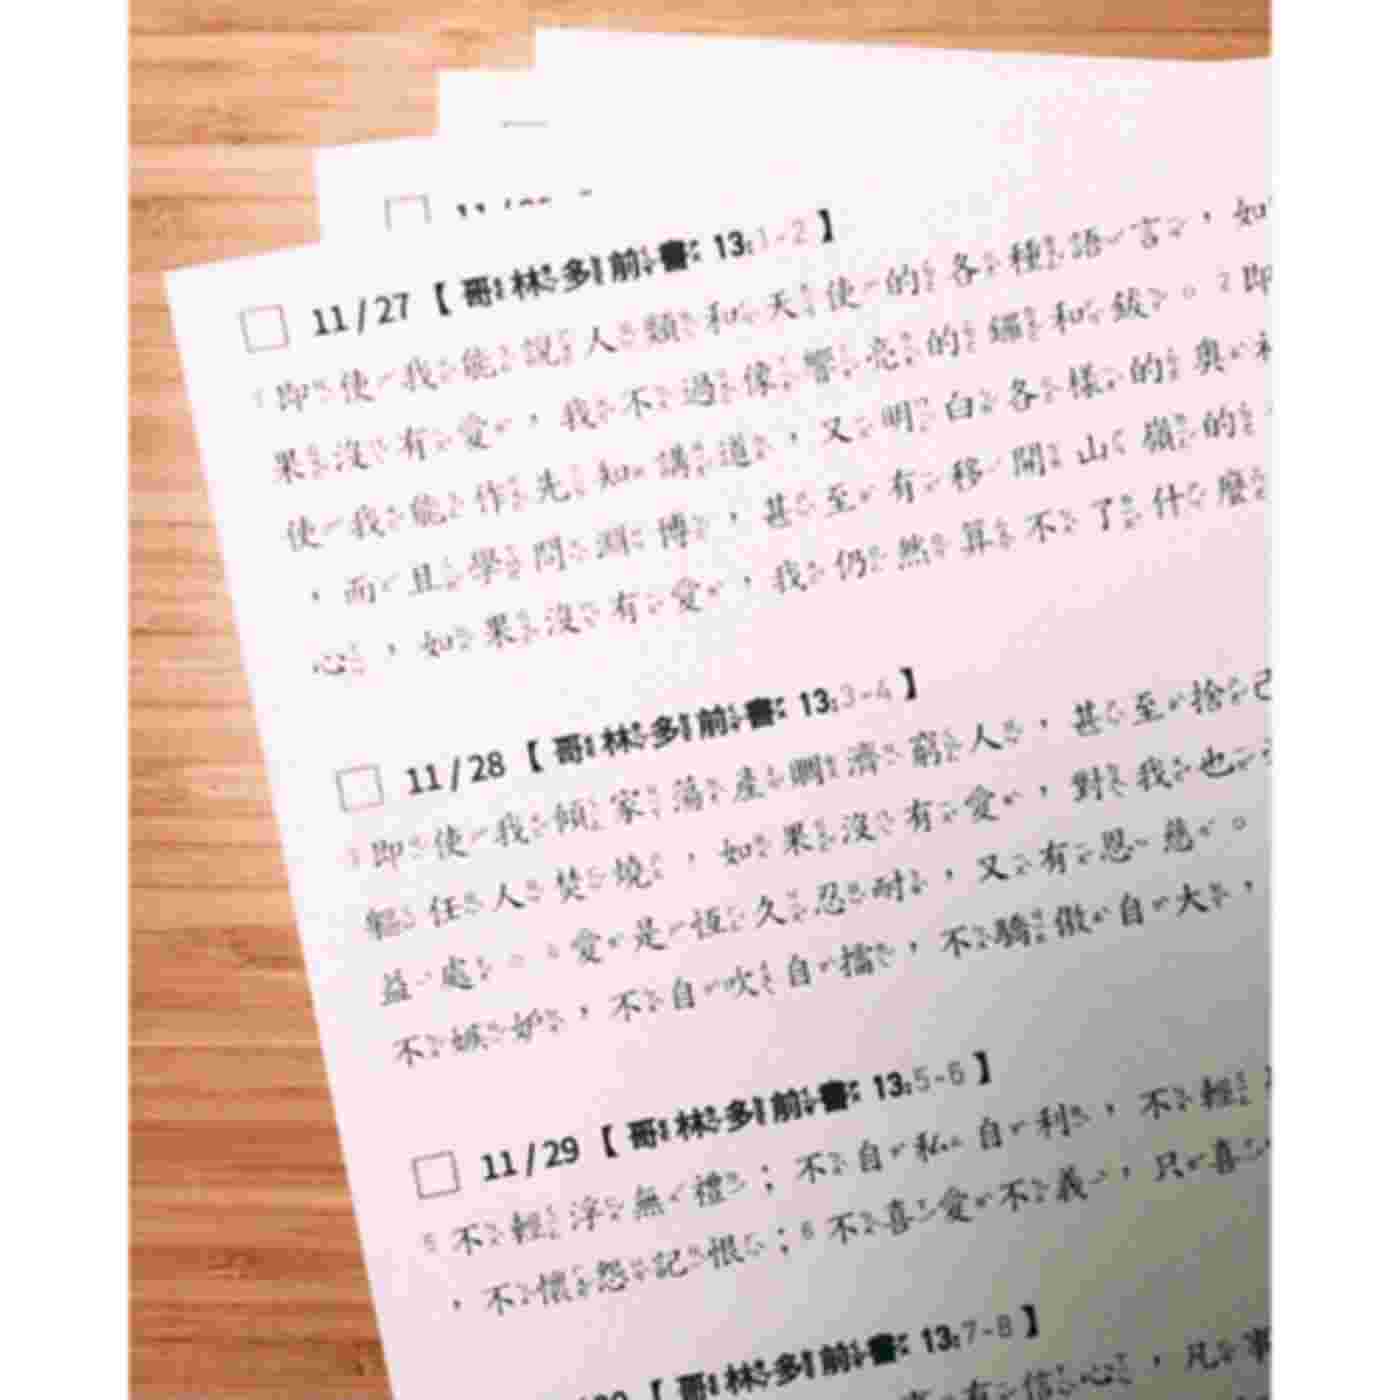 11/27【哥林多前書 13:1-2】
1 即使我能說人類和天使的各種語言，如
果沒有愛，我不過像響亮的鑼和鈸。2 即
使我能作先知講道，又明白各樣的奧
，而且學問淵博，甚至有移開山嶺的
心，如果沒有愛，我仍然算不了什麼
11/28【哥林多前書 13:3-4】
3 即使我傾家蕩產賙濟窮人，甚至捨己
軀任人焚燒，如果沒有愛，對我也
益處。4 愛是恆久忍耐，又有恩慈。
不嫉妒，不自吹自擂，不驕傲自大，
11/29【哥林多前書 13:5-6】
5 不輕浮無禮；不自私自利，不輕
，不懷怨記恨；6 不喜愛不義，只喜
【哥林多前書 13:7-8】
有信心，凡事